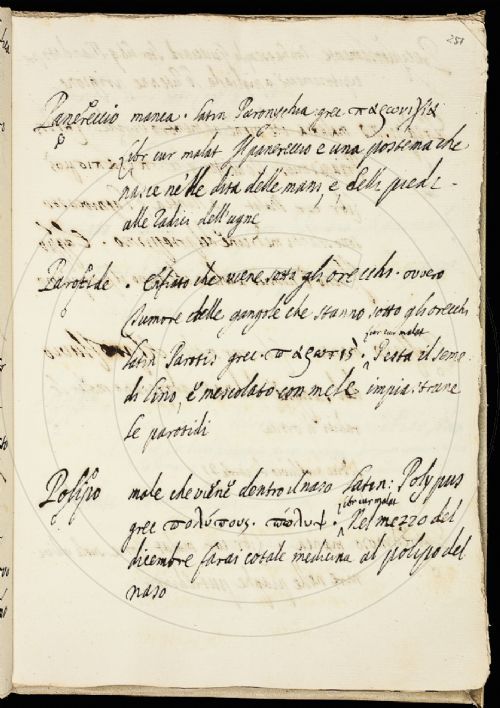 251
Panereccio manca. latin Paronychia: grec παρωνιχία
libr cur malat Il panereccio e una postema che
nasce nelle dita delle mani, e delli piedi
alle radici dell'ugne
Parotide. Enfiato che viene sotto gli orecchi. ovvero
tumore delle gangole che stanno sotto gli orecchi
libr cur malat
latin Parotis grec. παρωτις. Pesta il seme
di lino, e mescolato con mele impiastrane
le parotidi
Polipo male che viene dentro il naso latin: Polypus
libr cur malat
grec πολύπους. πώλυψ. Nel mezzo del
dicembre farai cotale medicina al polipo del
naso